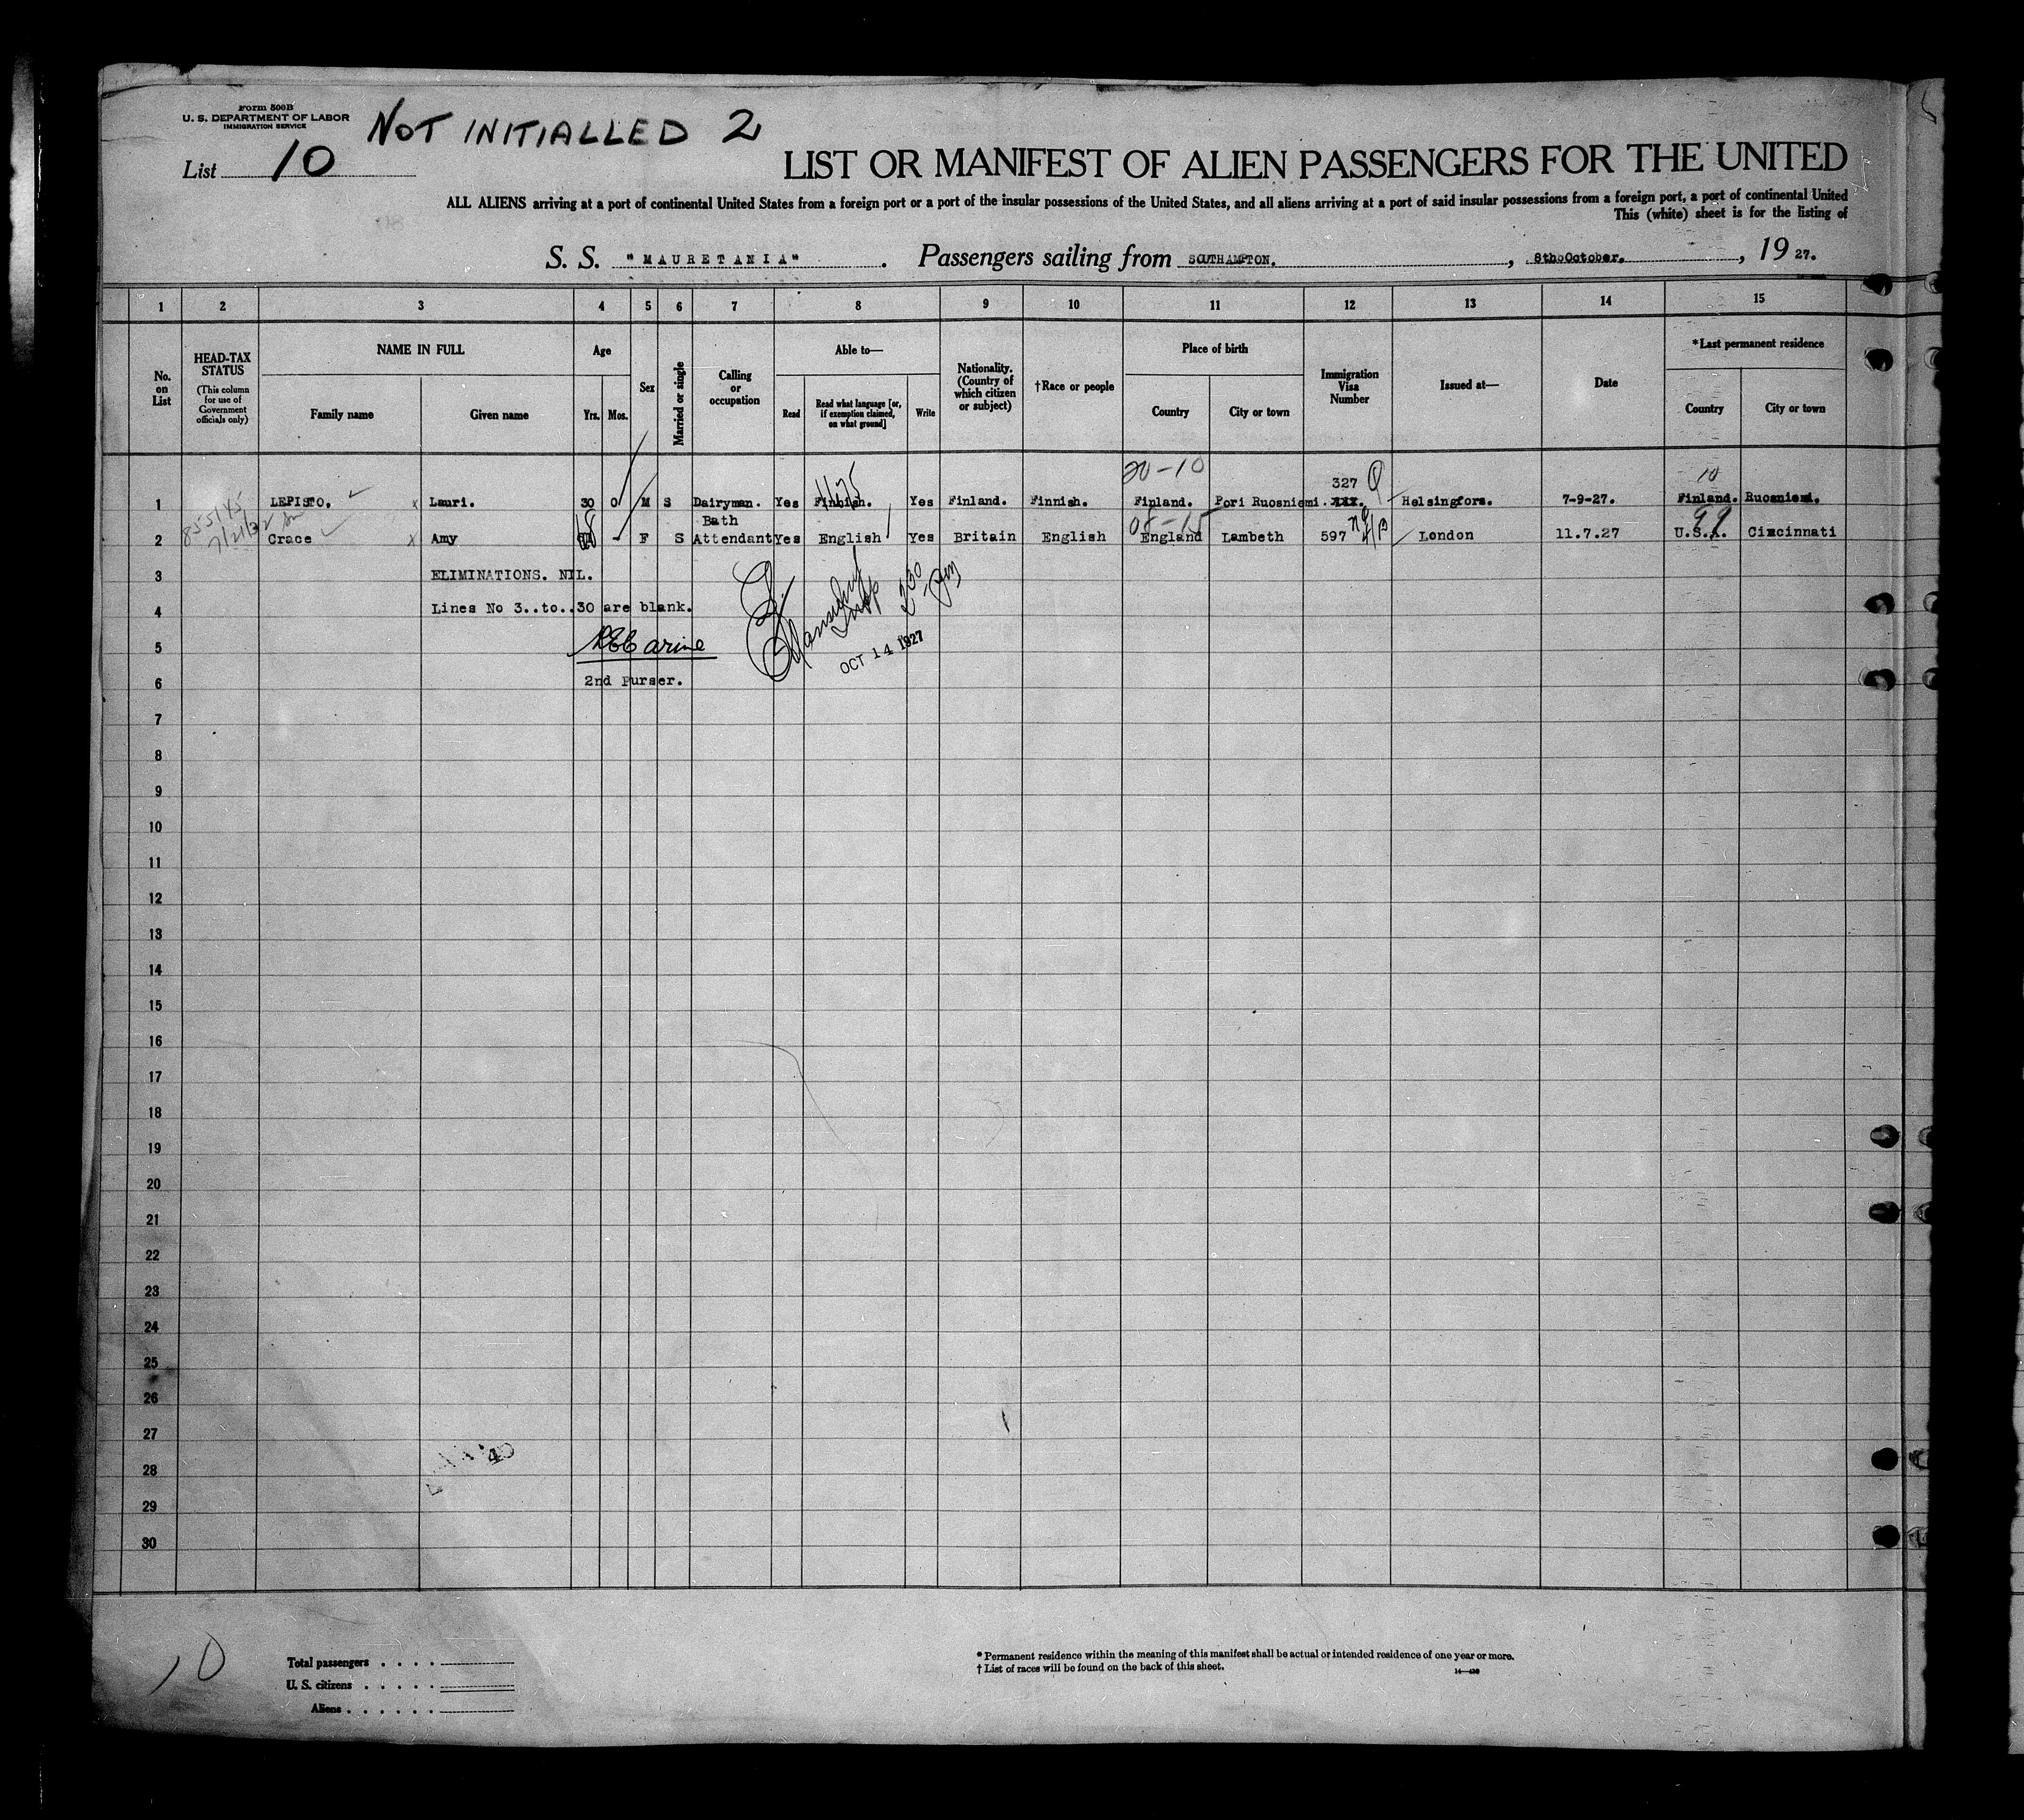 Form 500B
U. S. DEPARTMENT OF LABOR
IMMIGRATION SERVICE
NOT INITIALLED 2
List 10
LIST OR MANIFEST OF ALIEN PASSENGERS FOR THE UNITED
ALL ALIENS arriving at a port of continental United States from a foreign port or a port of the insular possessions of the United States, and all aliens arriving at a port of said insular possessions from a foreign port, a port of continental United
This (white) sheet is for the listing of
S. S. "MAURETANIA". Passengers sailing from SOUTHAMPTON. , 8th October. , 19 27.
1 2 3 4 5 6 7 8 9 10 11 12 13 14 15
No. on List
HEAD-TAX STATUS (This column for use of Government officials only)
NAME IN FULL
Family name Given name
Age
Yrs. Mos.
Sex
Married or single
Calling or occupation
Able to—
Read Read what language [or, if exemption claimed, on what ground] Write
Nationality. (Country of which citizen or subject)
†Race or people
Place of birth
Country City or town
Immigration Visa Number
Issued at—
Date
*Last permanent residence
Country City or town
20-10 327 10
1 LEPISTO. x Lauri. 30 0 M S Dairyman. Yes Finnish. Yes Finland. Finnish. Finland. Pori Ruosniemi. XXX. Helsingfors. 7-9-27. Finland. Ruosniemi.
2 Crace x Amy - F S Bath Attendant Yes English Yes Britain English England Lambeth 597 London 11.7.27 U.S.A. Cincinnati
3 ELIMINATIONS. NIL.
4 Lines No 3..to..30 are blank.
5 OCT 14 1927
6 2nd Purser.
7
8
9
10
11
12
13
14
15
16
17
18
19
20
21
22
23
24
25
26
27
28
29
30
10
Total passengers . . . .
U. S. citizens . . . . .
Aliens . . . . . .
* Permanent residence within the meaning of this manifest shall be actual or intended residence of one year or more.
† List of races will be found on the back of this sheet.